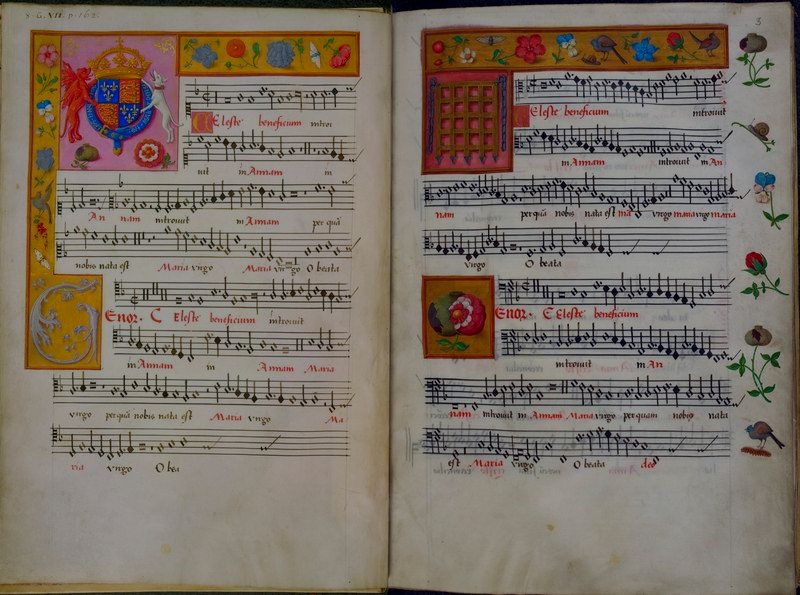 8. G. VII. p. 162.
CEleste beneficium introi
uit in Annam in
An nam introuit in Annam per quã
nobis nata est Maria virgo Maria virgo O beata
Enor. C Eleste beneficium introiuit
in Annam in Annam Maria
virgo per quã nobis nata est Maria virgo Ma
ria virgo O bea
3
Eleste beneficium introiuit
in Annam introiuit in An
nam per quã nobis nata est ma virgo maria virgo maria
virgo O beata
Enor. C Eleste beneficium
introiuit in An
nam introiuit in Annam Maria virgo per quam nobis nata
est Maria virgo O beata dee